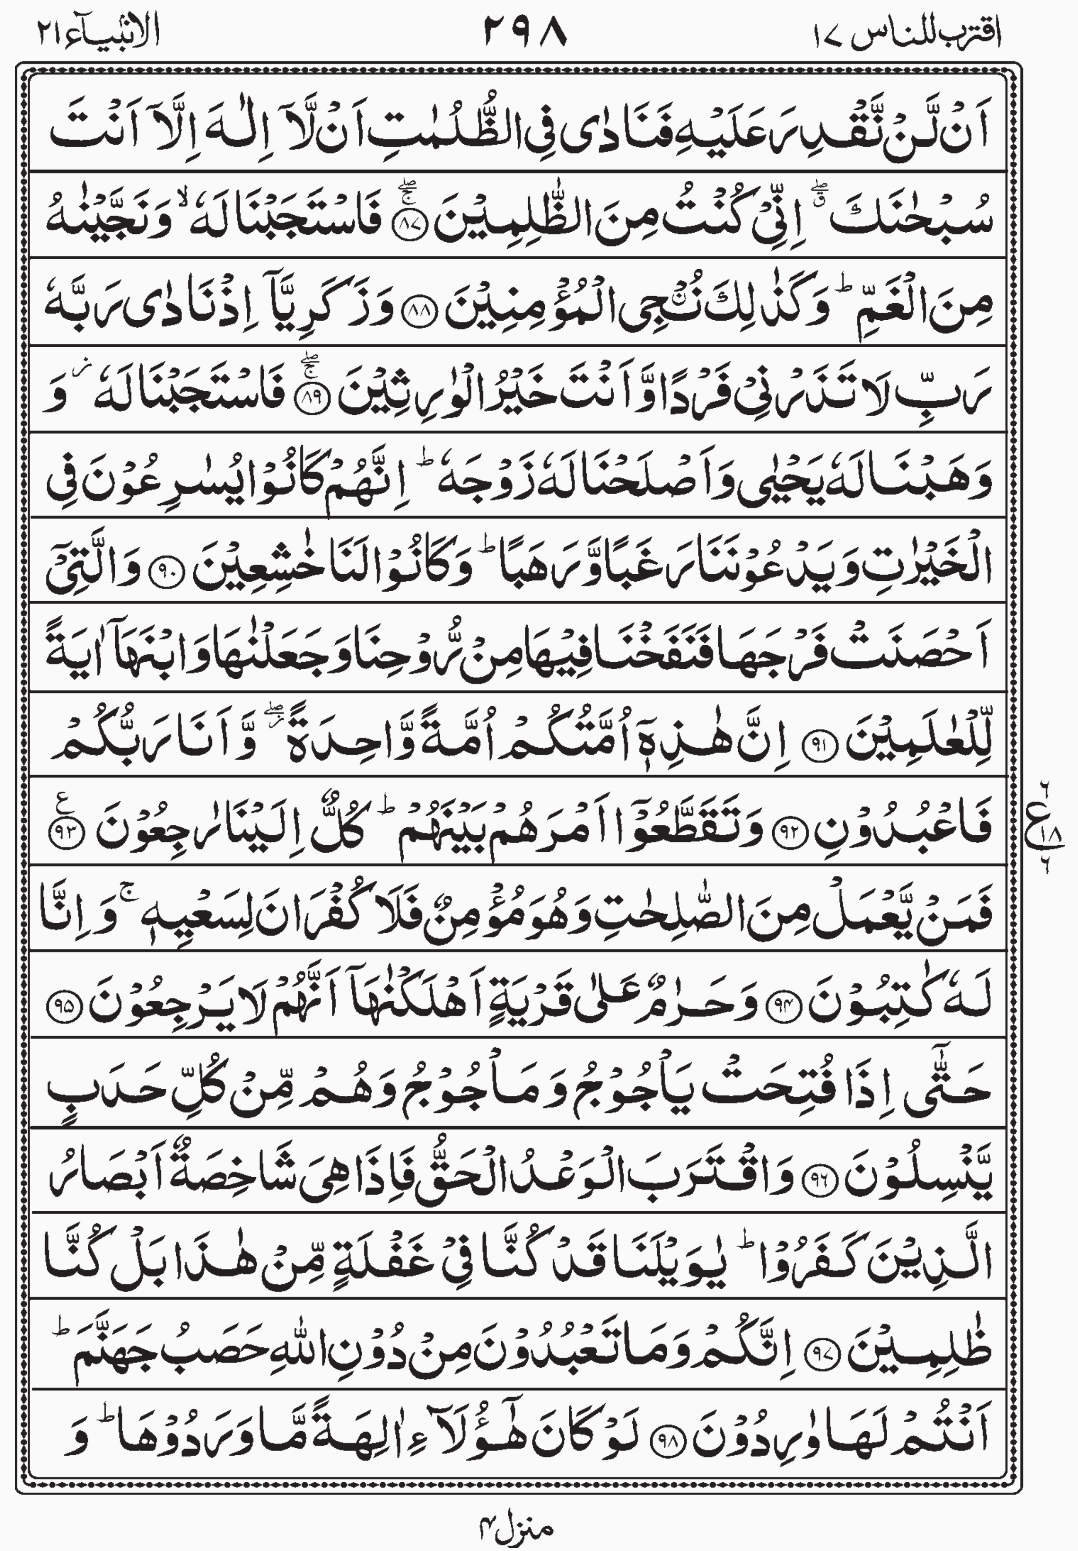 اقترب للناس ١٧ ٢٩٨ الانبیآء ٢١
اَنْ لَّنْ نَّقْدِرَ عَلَیْهِ فَنَادٰى فِی الظُّلُمٰتِ اَنْ لَّاۤ اِلٰهَ اِلَّاۤ اَنْتَ
سُبْحٰنَكَ ۖۗ اِنِّیْ كُنْتُ مِنَ الظّٰلِمِیْنَ ﴿۸۷﴾ۚۖ فَاسْتَجَبْنَا لَهٗ ۙ وَنَجَّیْنٰهُ
مِنَ الْغَمِّ ؕ وَكَذٰلِكَ نُـنْۢجِی الْمُؤْمِنِیْنَ ﴿۸۸﴾ وَزَكَرِیَّاۤ اِذْ نَادٰى رَبَّهٗ
رَبِّ لَا تَذَرْنِیْ فَرْدًا وَّاَنْتَ خَیْرُ الْوٰرِثِیْنَ ﴿۸۹﴾ۚۖ فَاسْتَجَبْنَا لَهٗ ؗ وَ
وَهَبْنَا لَهٗ یَحْیٰى وَاَصْلَحْنَا لَهٗ زَوْجَهٗ ؕ اِنَّهُمْ كَانُوْا یُسٰرِعُوْنَ فِی
الْخَیْرٰتِ وَیَدْعُوْنَنَا رَغَبًا وَّرَهَبًا ؕ وَكَانُوْا لَنَا خٰشِعِیْنَ ﴿۹۰﴾ وَالَّتِیْۤ
اَحْصَنَتْ فَرْجَهَا فَنَفَخْنَا فِیْهَا مِنْ رُّوْحِنَا وَجَعَلْنٰهَا وَابْنَهَاۤ اٰیَةً
لِّلْعٰلَمِیْنَ ﴿۹۱﴾ اِنَّ هٰذِهٖۤ اُمَّتُكُمْ اُمَّةً وَّاحِدَةً ۖؗ وَّاَنَا رَبُّكُمْ
فَاعْبُدُوْنِ ﴿۹۲﴾ وَتَقَطَّعُوْۤا اَمْرَهُمْ بَیْنَهُمْ ؕ كُلٌّ اِلَیْنَا رٰجِعُوْنَ ﴿۹۳﴾ ع
٦ ع ١٨ ٦
فَمَنْ یَّعْمَلْ مِنَ الصّٰلِحٰتِ وَهُوَ مُؤْمِنٌ فَلَا كُفْرَانَ لِسَعْیِهٖ ۚ وَاِنَّا
لَهٗ كٰتِبُوْنَ ﴿۹۴﴾ وَحَرٰمٌ عَلٰى قَرْیَةٍ اَهْلَكْنٰهَاۤ اَنَّهُمْ لَا یَرْجِعُوْنَ ﴿۹۵﴾
حَتّٰۤى اِذَا فُتِحَتْ یَاْجُوْجُ وَمَاْجُوْجُ وَهُمْ مِّنْ كُلِّ حَدَبٍ
یَّنْسِلُوْنَ ﴿۹۶﴾ وَاقْتَرَبَ الْوَعْدُ الْحَقُّ فَاِذَا هِیَ شَاخِصَةٌ اَبْصَارُ
الَّذِیْنَ كَفَرُوْا ؕ یٰوَیْلَنَا قَدْ كُنَّا فِیْ غَفْلَةٍ مِّنْ هٰذَا بَلْ كُنَّا
ظٰلِمِیْنَ ﴿۹۷﴾ اِنَّكُمْ وَمَا تَعْبُدُوْنَ مِنْ دُوْنِ اللّٰهِ حَصَبُ جَهَنَّمَ ؕ
اَنْتُمْ لَهَا وٰرِدُوْنَ ﴿۹۸﴾ لَوْ كَانَ هٰۤؤُلَآءِ اٰلِهَةً مَّا وَرَدُوْهَا ؕ وَ
منزل ۴